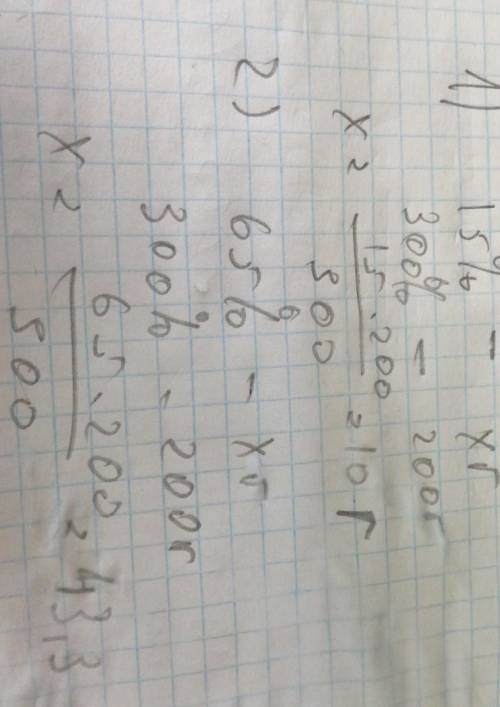 1) 15% - xг
300% - 200г
x = 15 · 200 / 300 = 10 г
2) 65% - xг
300% - 200г
x = 65 · 200 / 300 = 43,3